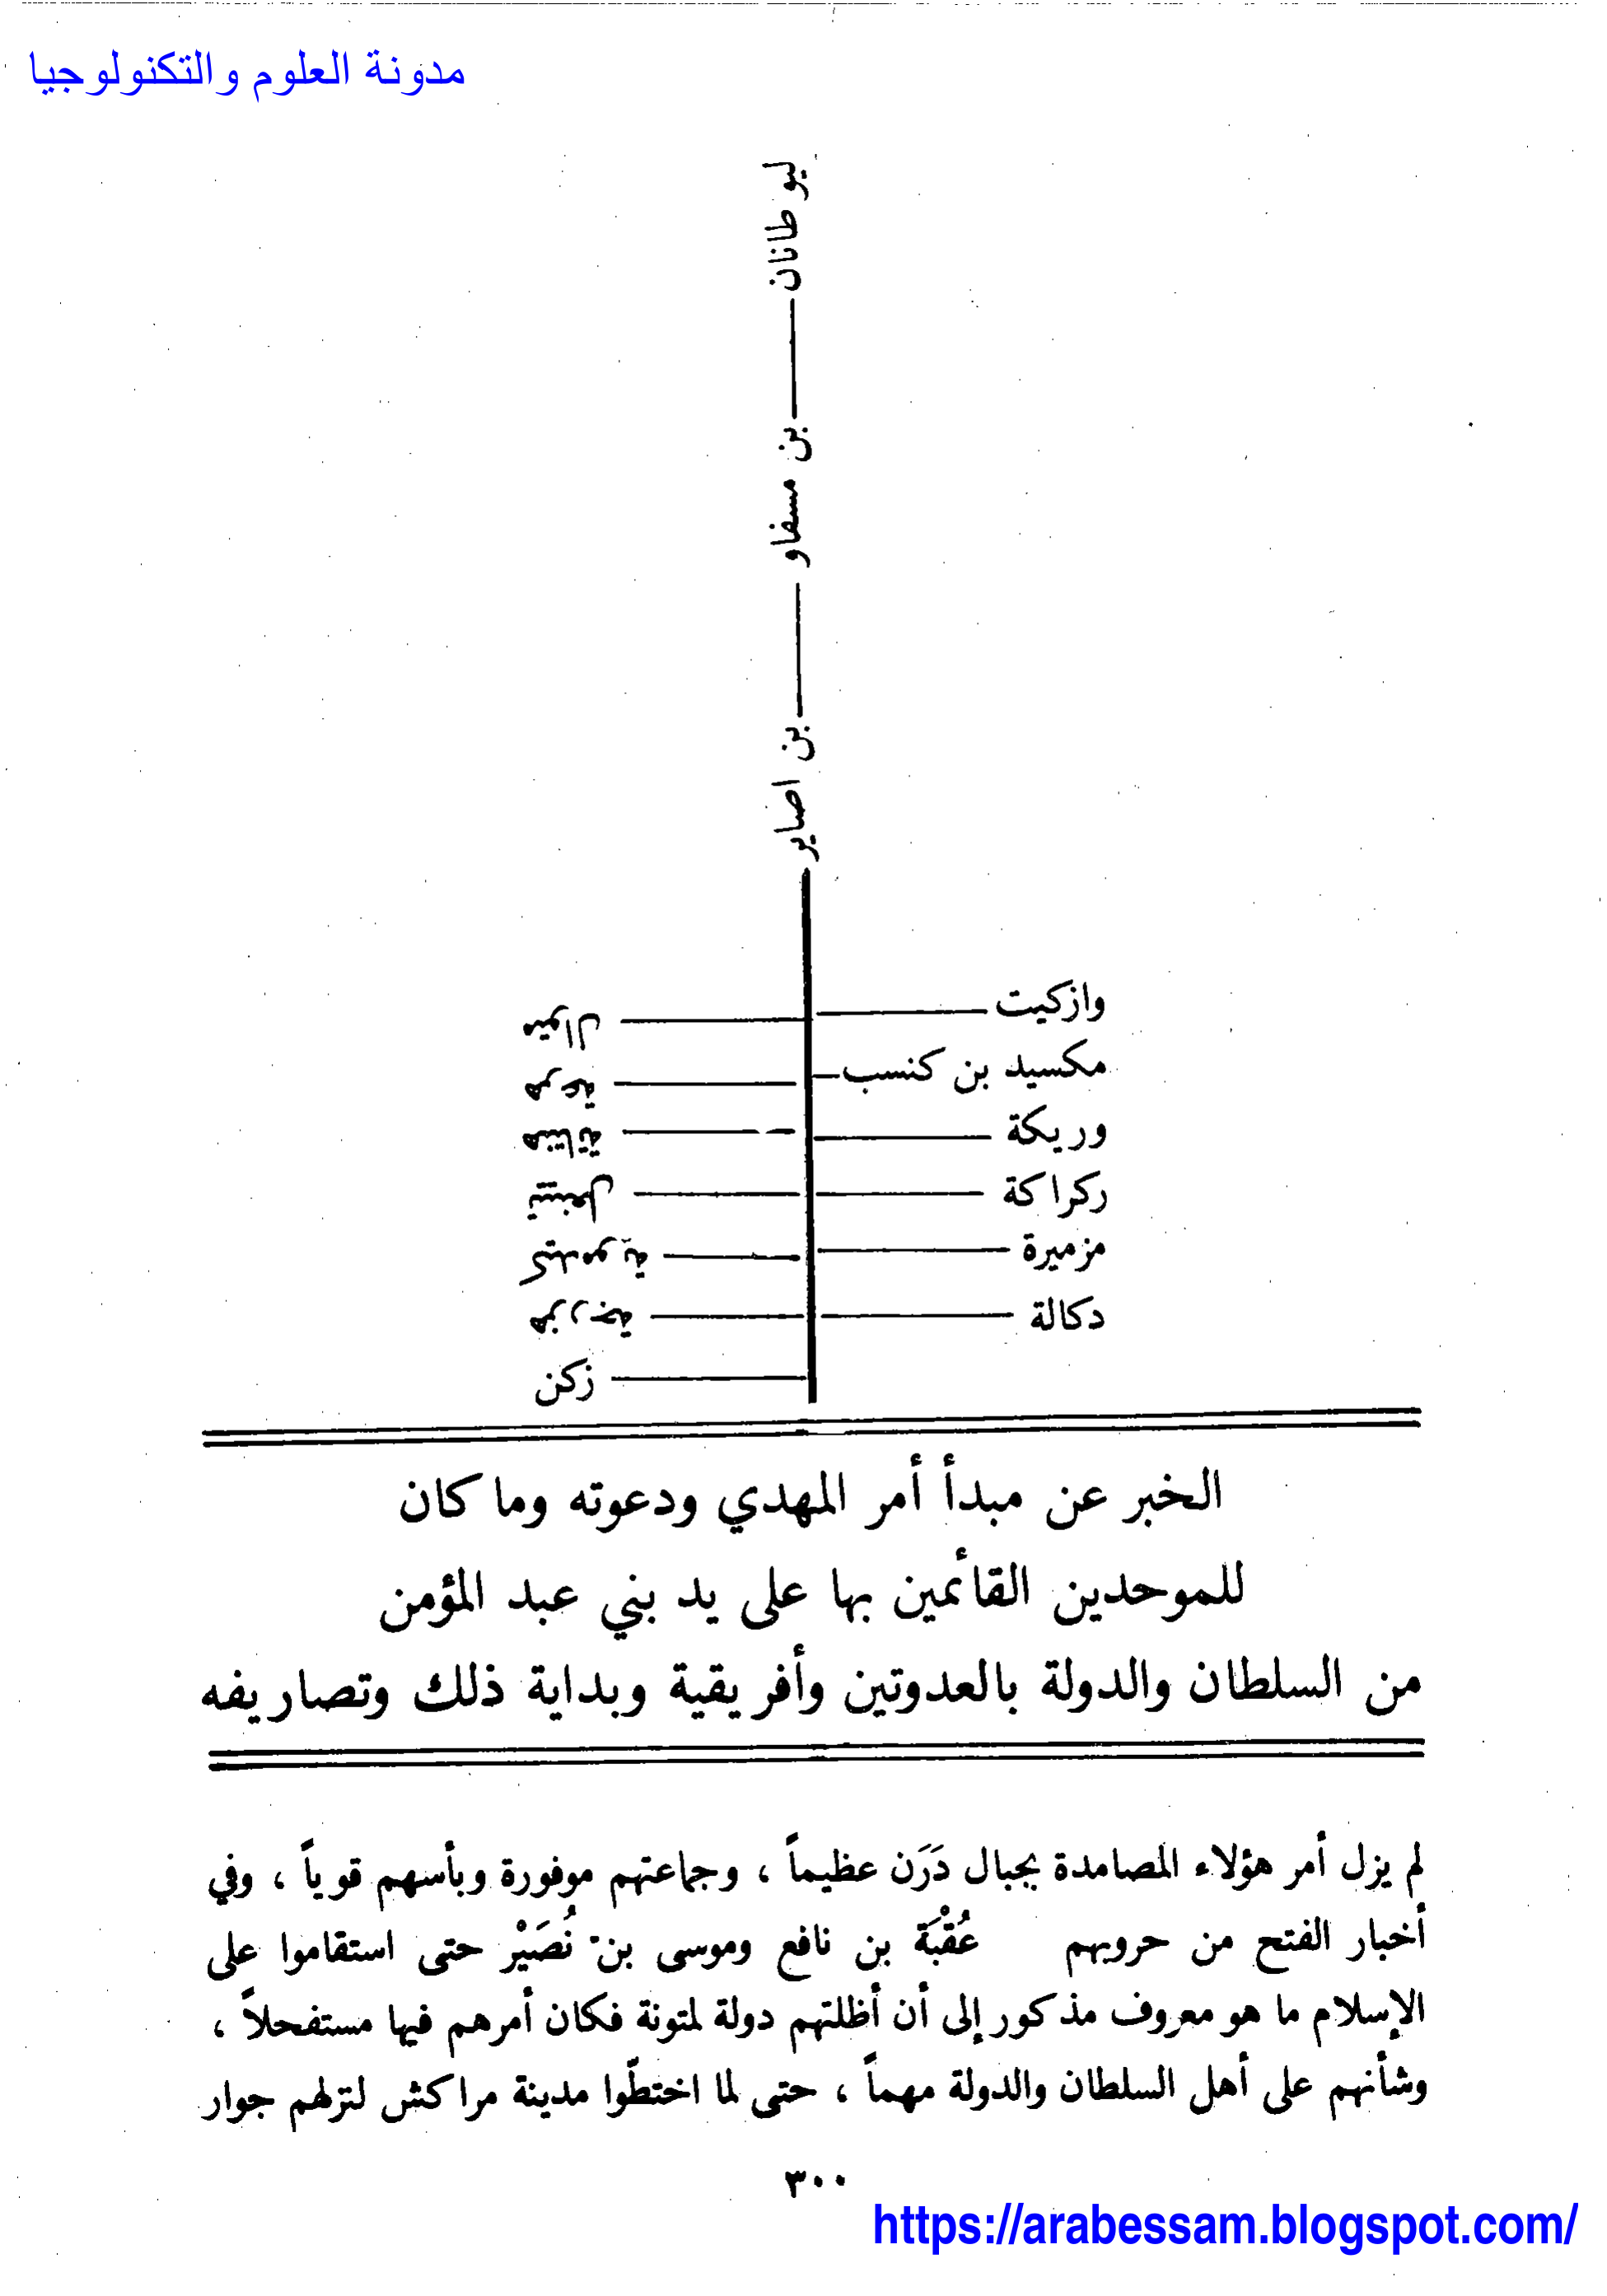 مدونة العلوم والتكنولوجيا
ليو طانان
بن مسفاو
بن اصاير
وازكيت
مكسيد بن كنسب
وريكة
ركراكة
مزميرة
دكالة
هرغة
هنتاتة
تينملل
كيدموية
هزرجة
زكن
الخبر عن مبدأ أمر المهدي ودعوته وما كان
للموحدين القائمين بها على يد بني عبد المؤمن
من السلطان والدولة بالعدوتين وأفريقية وبداية ذلك وتصاريفه
لم يزل أمر هؤلاء المصامدة بجبال دَرَن عظيماً ، وجماعتهم موفورة وبأسهم قوياً ، وفي
أخبار الفتح من حروبهم عُقْبَة بن نافع وموسى بن نُصَيْر حتى استقاموا على
الإسلام ما هو معروف مذكور إلى أن أظلتهم دولة لمتونة فكان أمرهم فيها مستفحلاً ،
وشأنهم على أهل السلطان والدولة مهماً ، حتى لما اختطّوا مدينة مراكش لنزلهم جوار
٣٠٠
https://arabessam.blogspot.com/